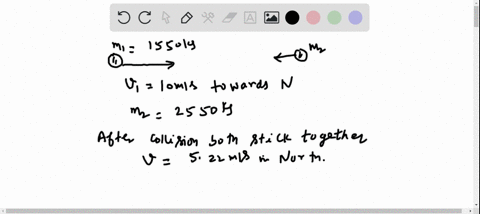 m₁ = 1550 kg
m₂
v₁ = 10 m/s towards N
m₂ = 2550 kg
After collision both stick together
v = 5.22 m/s in North.